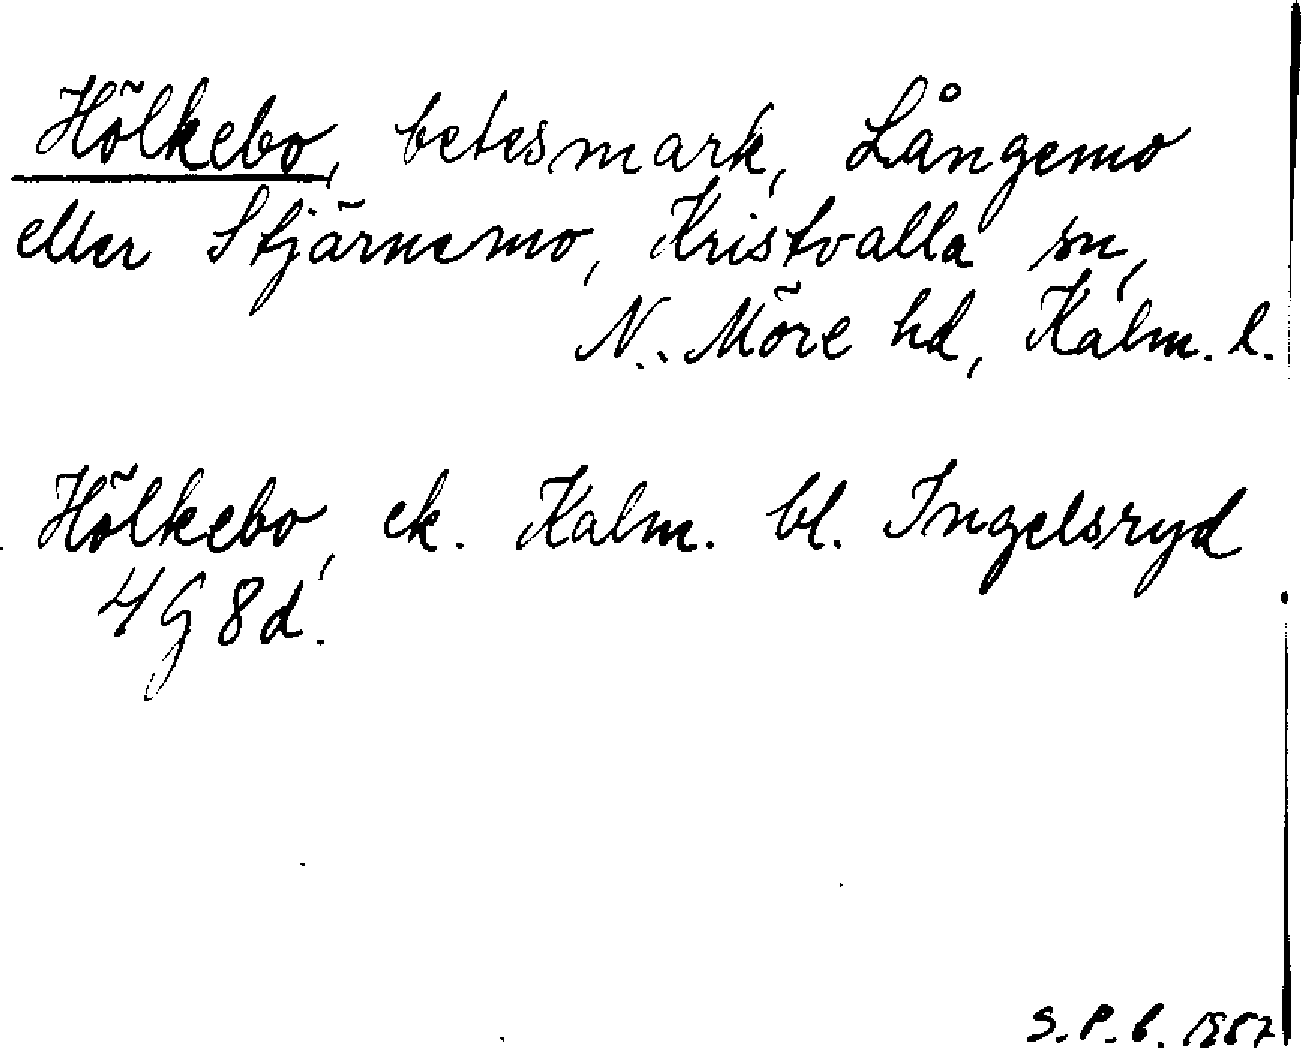 Hölkebo, betesmark, Långemo
eller Stjärnemo, Kristvalla sn,
N. Möre hd, Kalm. l.
Hölkebo, ek. Kalm. bl. Ingelsryd
4G 8d.
S.P.b. 1957